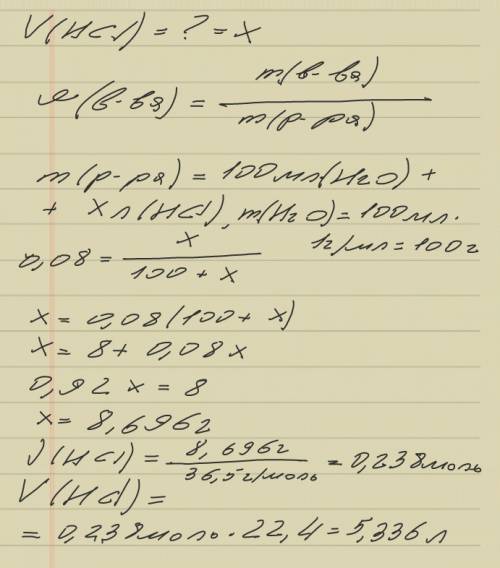 V(HCl) = ? = X
ω(в-вя) = m(в-вя) / m(р-ря)
m(р-ря) = 100мл(H2O) +
+ X л(HCl), m(H2O) = 100мл ·
1г/мл = 100г
0,08 = X / 100 + X
X = 0,08(100 + X)
X = 8 + 0,08x
0,92x = 8
x = 8,696г
ν(HCl) = 8,696г / 36,5г/моль = 0,238моль
V(HCl) =
= 0,238моль · 22,4 = 5,336л